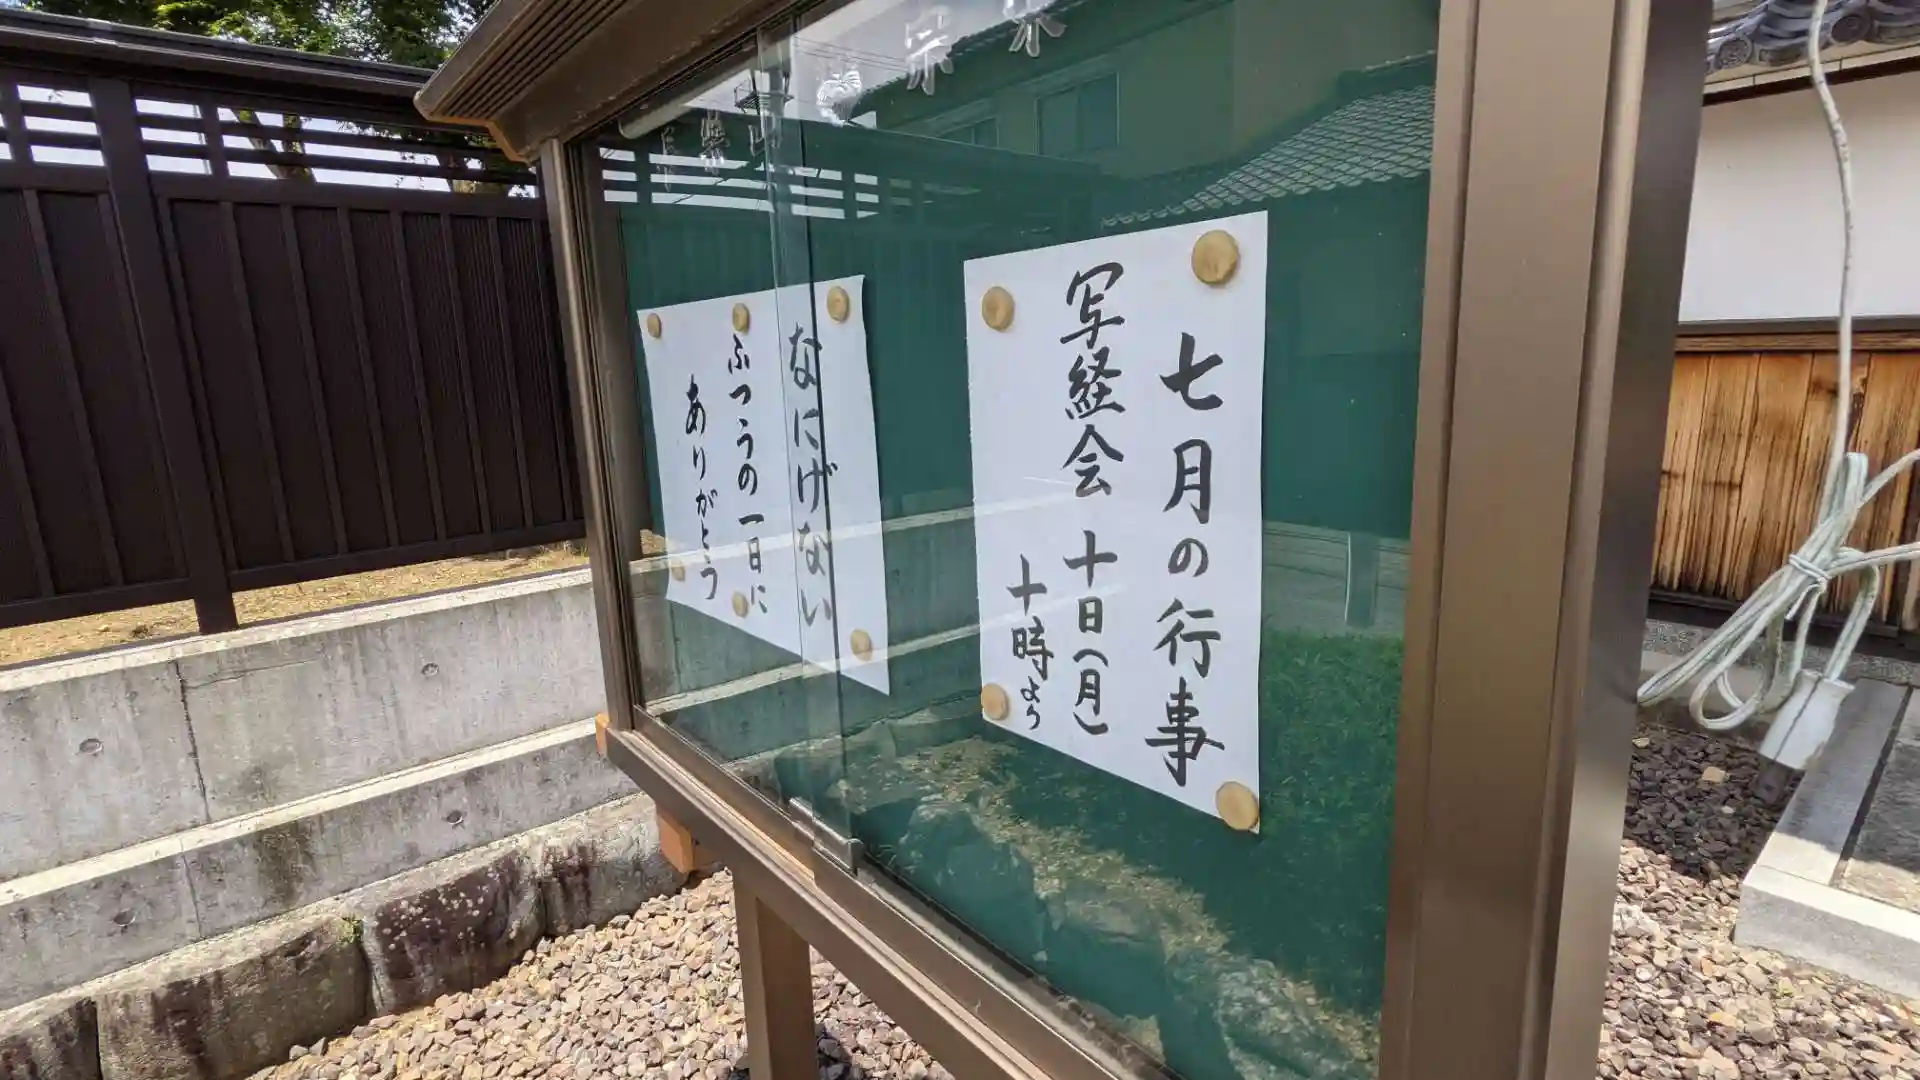 七月の行事
写経会 十日(月)
十時より
なにげない
ふつうの一日に
ありがとう